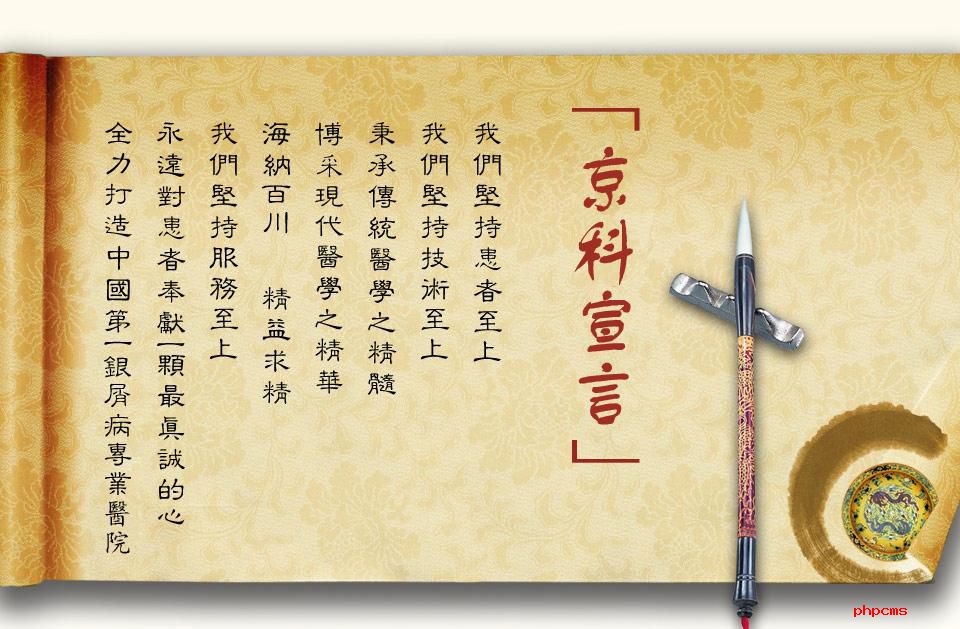 「京科宣言」
我們堅持患者至上
我們堅持技術至上
秉承傳統醫學之精髓
博采現代醫學之精華
海納百川 精益求精
我們堅持服務至上
永遠對患者奉獻一顆最真誠的心
全力打造中國第一銀屑病專業醫院
phpcms